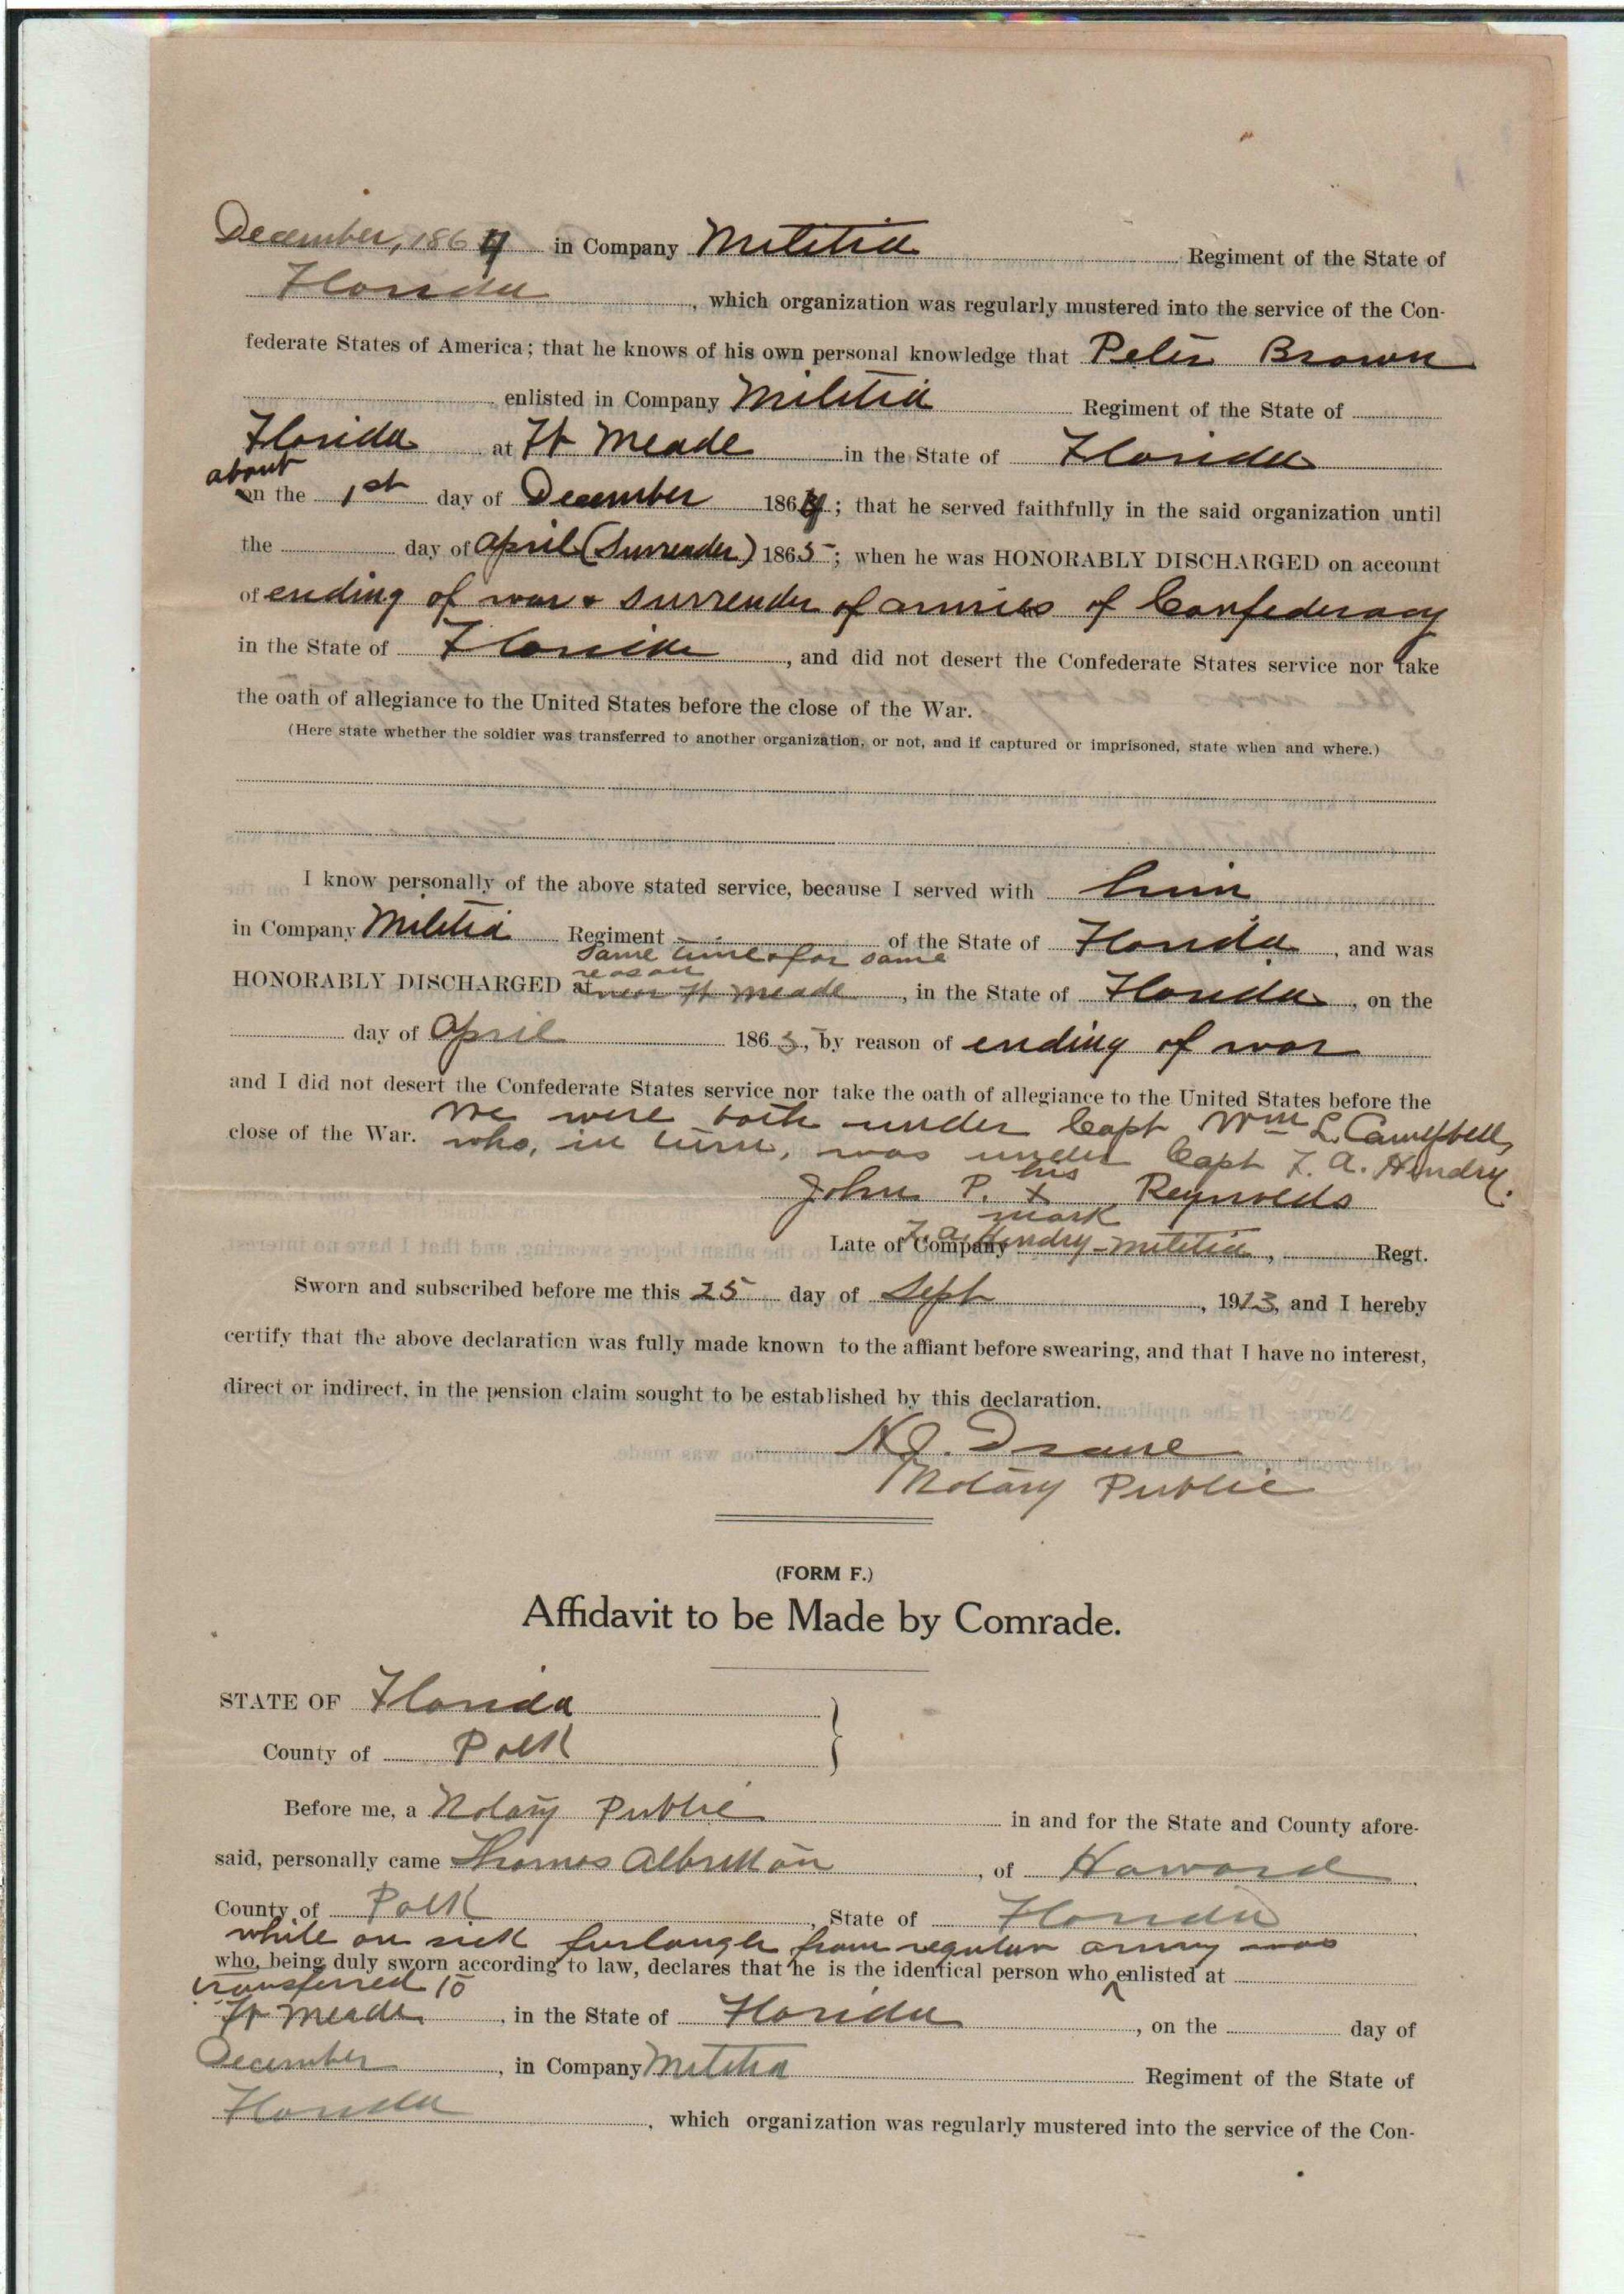 December, 1864 in Company Militia Regiment of the State of
Florida, which organization was regularly mustered into the service of the Con-
federate States of America; that he knows of his own personal knowledge that Peter Brown
enlisted in Company Militia Regiment of the State of
Florida at Ft Meade in the State of Florida
about
on the 1st day of December 1864; that he served faithfully in the said organization until
the day of April (Surrender) 1865; when he was HONORABLY DISCHARGED on account
of ending of war & surrender of armies of Confederacy
in the State of Florida, and did not desert the Confederate States service nor take
the oath of allegiance to the United States before the close of the War.
(Here state whether the soldier was transferred to another organization, or not, and if captured or imprisoned, state when and where.)
I know personally of the above stated service, because I served with him
in Company Militia Regiment of the State of Florida, and was
same time & for same
reason
HONORABLY DISCHARGED at near Ft Meade, in the State of Florida, on the
day of April 1865, by reason of ending of war
and I did not desert the Confederate States service nor take the oath of allegiance to the United States before the
close of the War. We were both under Capt Wm L. Campbell,
who, in turn, was under Capt F. A. Hendry.
his
John P. X Reynolds
mark
Late of Company F. A. Hendry - Militia, Regt.
Sworn and subscribed before me this 25 day of Sept, 1913, and I hereby
certify that the above declaration was fully made known to the affiant before swearing, and that I have no interest,
direct or indirect, in the pension claim sought to be established by this declaration.
H. J. Drane
Notary Public
(FORM F.)
Affidavit to be Made by Comrade.
STATE OF Florida
County of Polk
Before me, a Notary Public in and for the State and County afore-
said, personally came Thomas Albritton, of Haward
County of Polk, State of Florida
while on sick furlough from regular army was
who, being duly sworn according to law, declares that he is the identical person who ^ enlisted at
transferred to
Ft Meade, in the State of Florida, on the day of
December, in Company Militia Regiment of the State of
Florida, which organization was regularly mustered into the service of the Con-